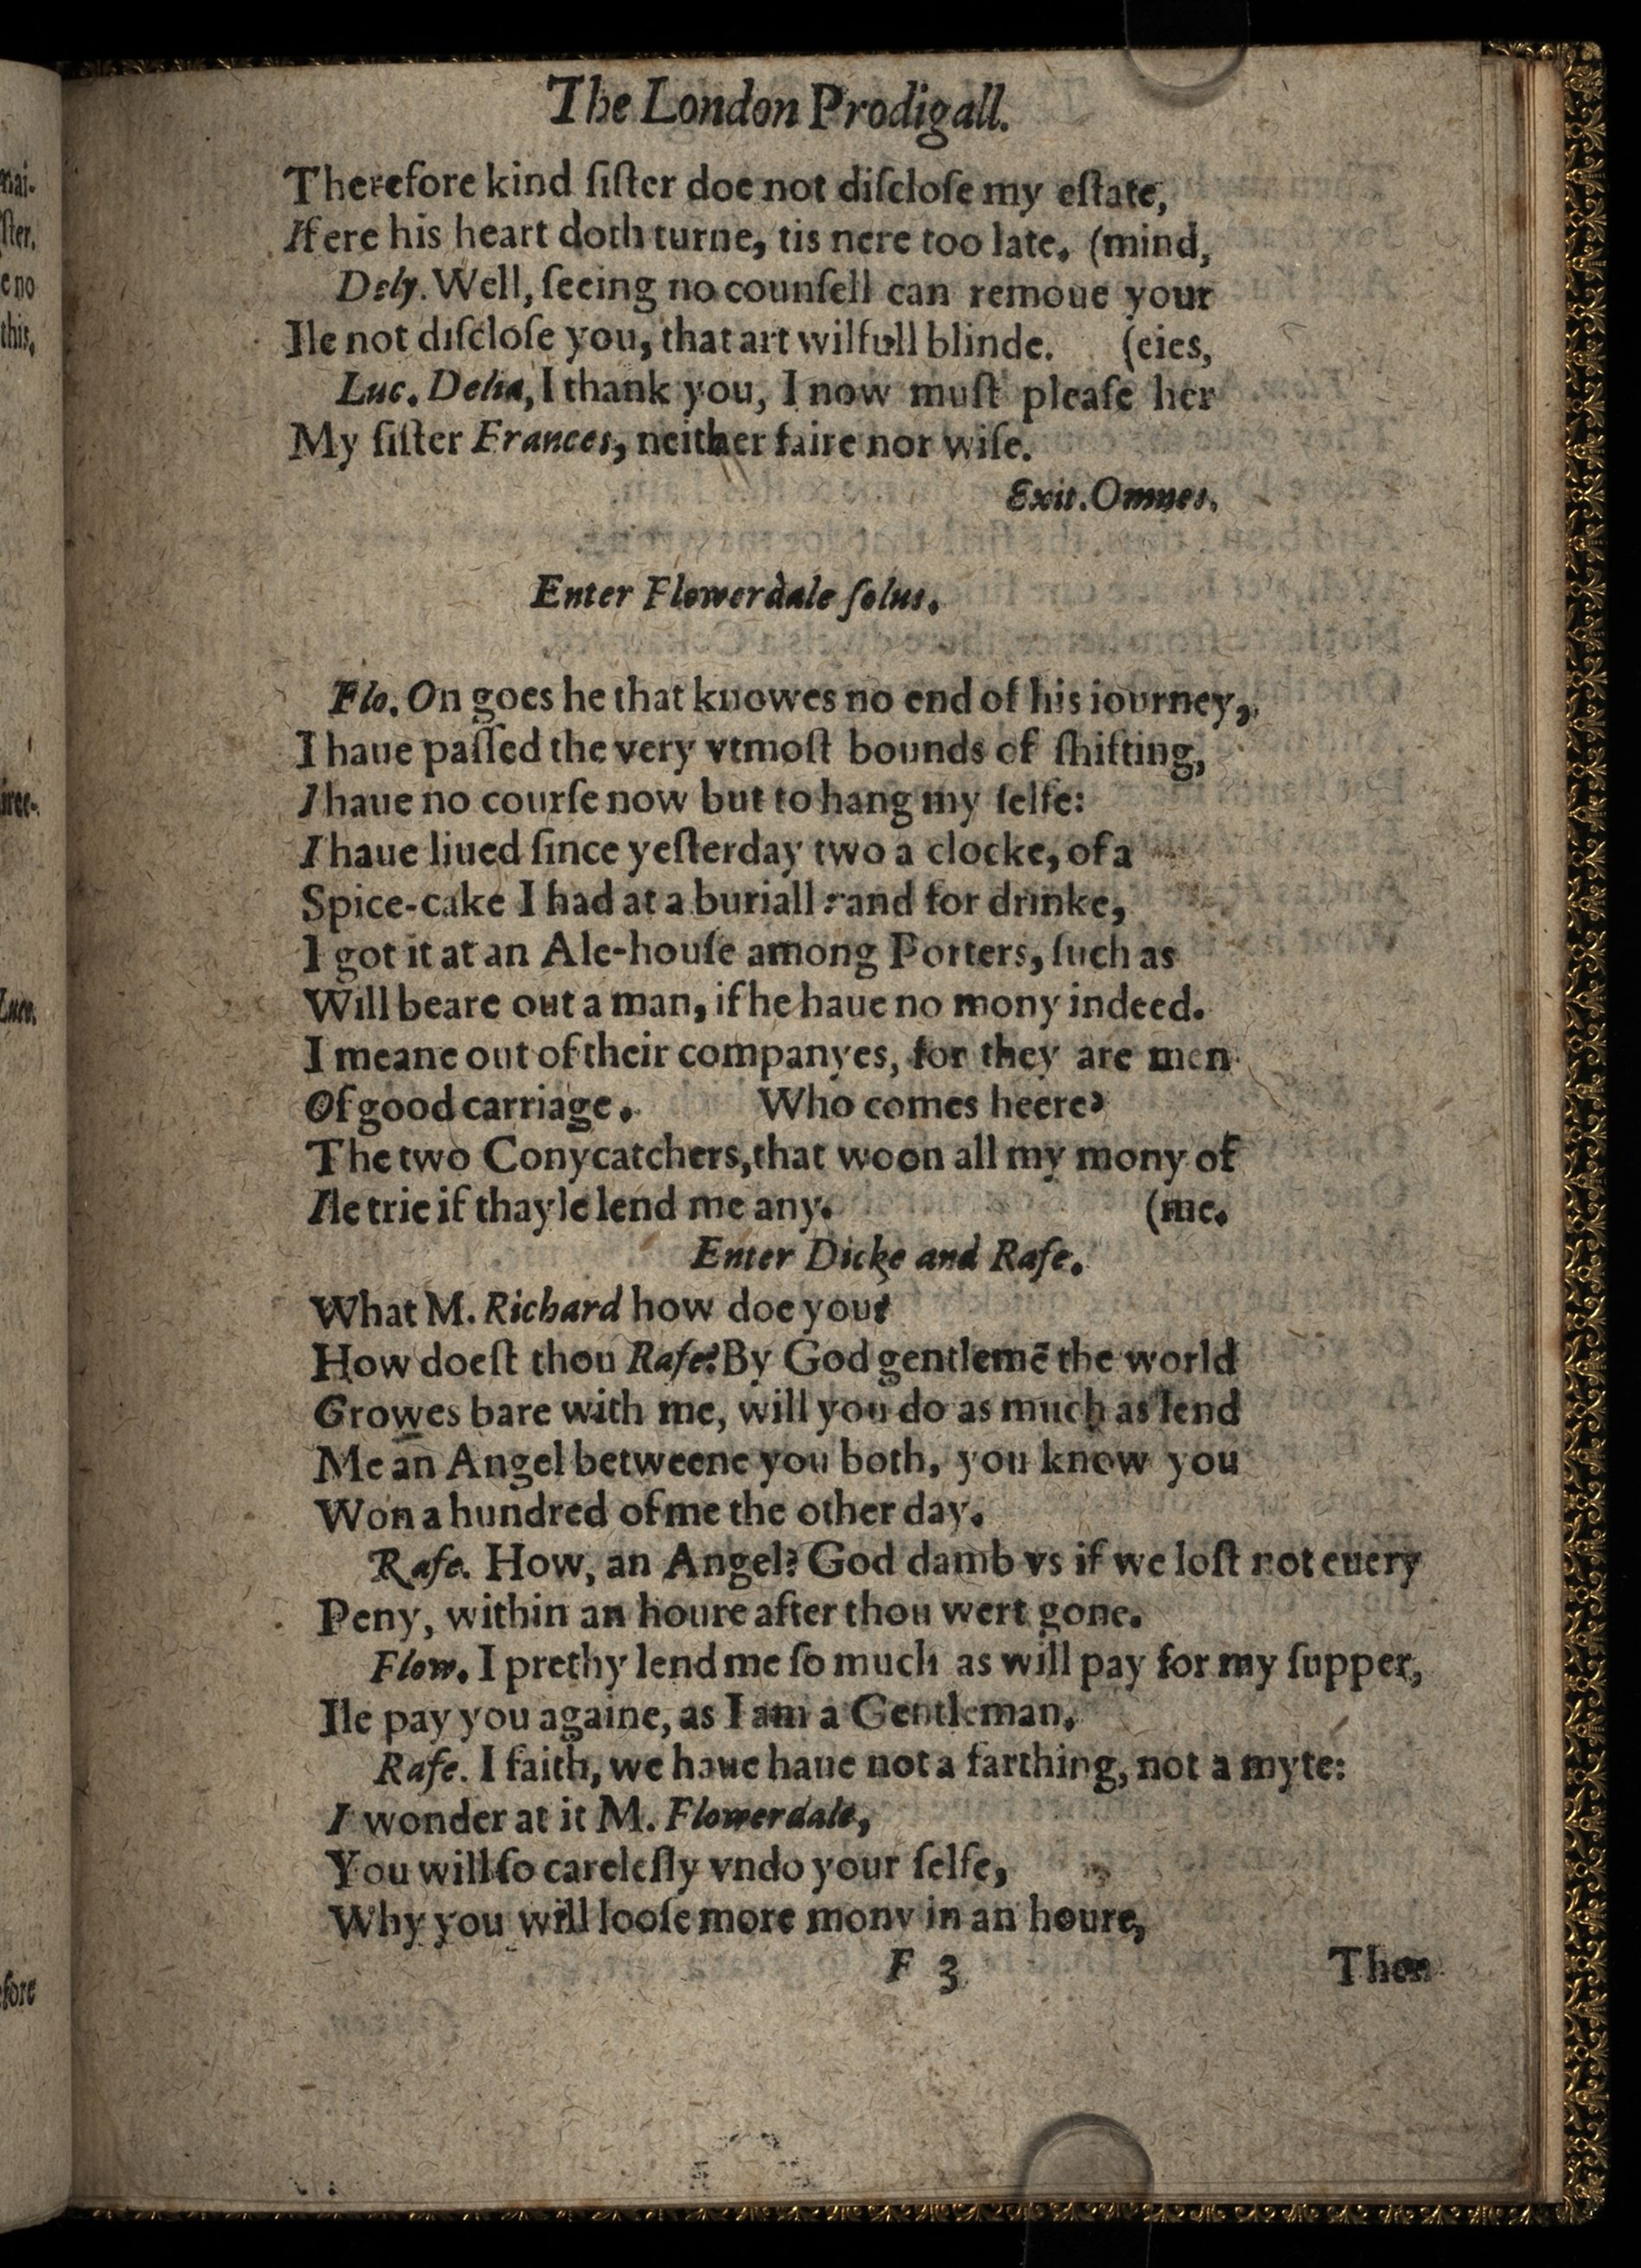 The London Prodigall.
Therefore kind ſiſter doe not diſcloſe my eſtate,
If ere his heart doth turne, tis nere too late. (mind,
Dely. Well, ſeeing no counſell can remoue your
Ile not diſcloſe you, that art wilfull blinde. (eies,
Luc. Delia, I thank you, I now muſt pleaſe her
My ſiſter Frances, neither faire nor wiſe.
Exit. Omnes.
Enter Flowerdale ſolus.
Flo. On goes he that knowes no end of his iourney,
I haue paſſed the very vtmoſt bounds of ſhifting,
I haue no courſe now but to hang my ſelfe:
I haue liued ſince yeſterday two a clocke, of a
Spice-cake I had at a buriall: and for drinke,
I got it at an Ale-houſe among Porters, ſuch as
Will beare out a man, if he haue no mony indeed.
I meane out of their companyes, for they are men
Of good carriage. Who comes heere?
The two Conycatchers, that woon all my mony of
Ile trie if thayle lend me any. (me.
Enter Dicke and Rafe.
What M. Richard how doe you?
How doeſt thou Rafe? By God gentlemẽ the world
Growes bare with me, will you do as much as lend
Me an Angel betweene you both, you know you
Won a hundred of me the other day.
Rafe. How, an Angel? God damb vs if we loſt not euery
Peny, within an houre after thou wert gone.
Flow. I prethy lend me ſo much as will pay for my ſupper,
Ile pay you againe, as I am a Gentleman.
Rafe. I faith, we haue haue not a farthing, not a myte:
I wonder at it M. Flowerdale,
You will ſo careleſly vndo your ſelfe,
Why you will looſe more mony in an houre,
F 3 Then
mai-
ſter.
e no
this,
Luce.
fore